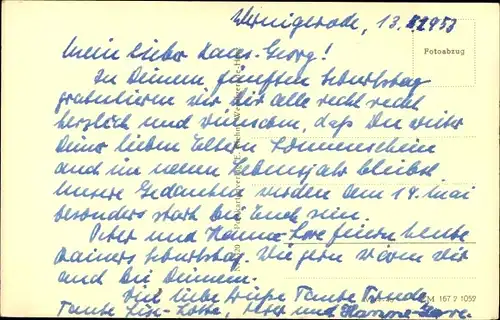 Wernigerode, 13.5.1953
Fotoabzug
Mein lieber Hans-Georg!
Zu Deinem fünften Geburtstag
gratulieren wir Dir alle recht recht
herzlich und wünschen, daß Du weiter
Deiner lieben Eltern Sonnenschein
auch im neuen Lebensjahr bleibst.
Unsere Gedanken werden am 14. Mai
besonders stark bei Euch sein.
Peter und Hanne-Lore feiern heute
Rainers Geburtstag. Wie gern wären wir
auch bei Deinem.
Viel liebe Grüße Tante Friede
Tante Lise-Lotte, Peter und Hanne-Lore.
M 167 2 1052